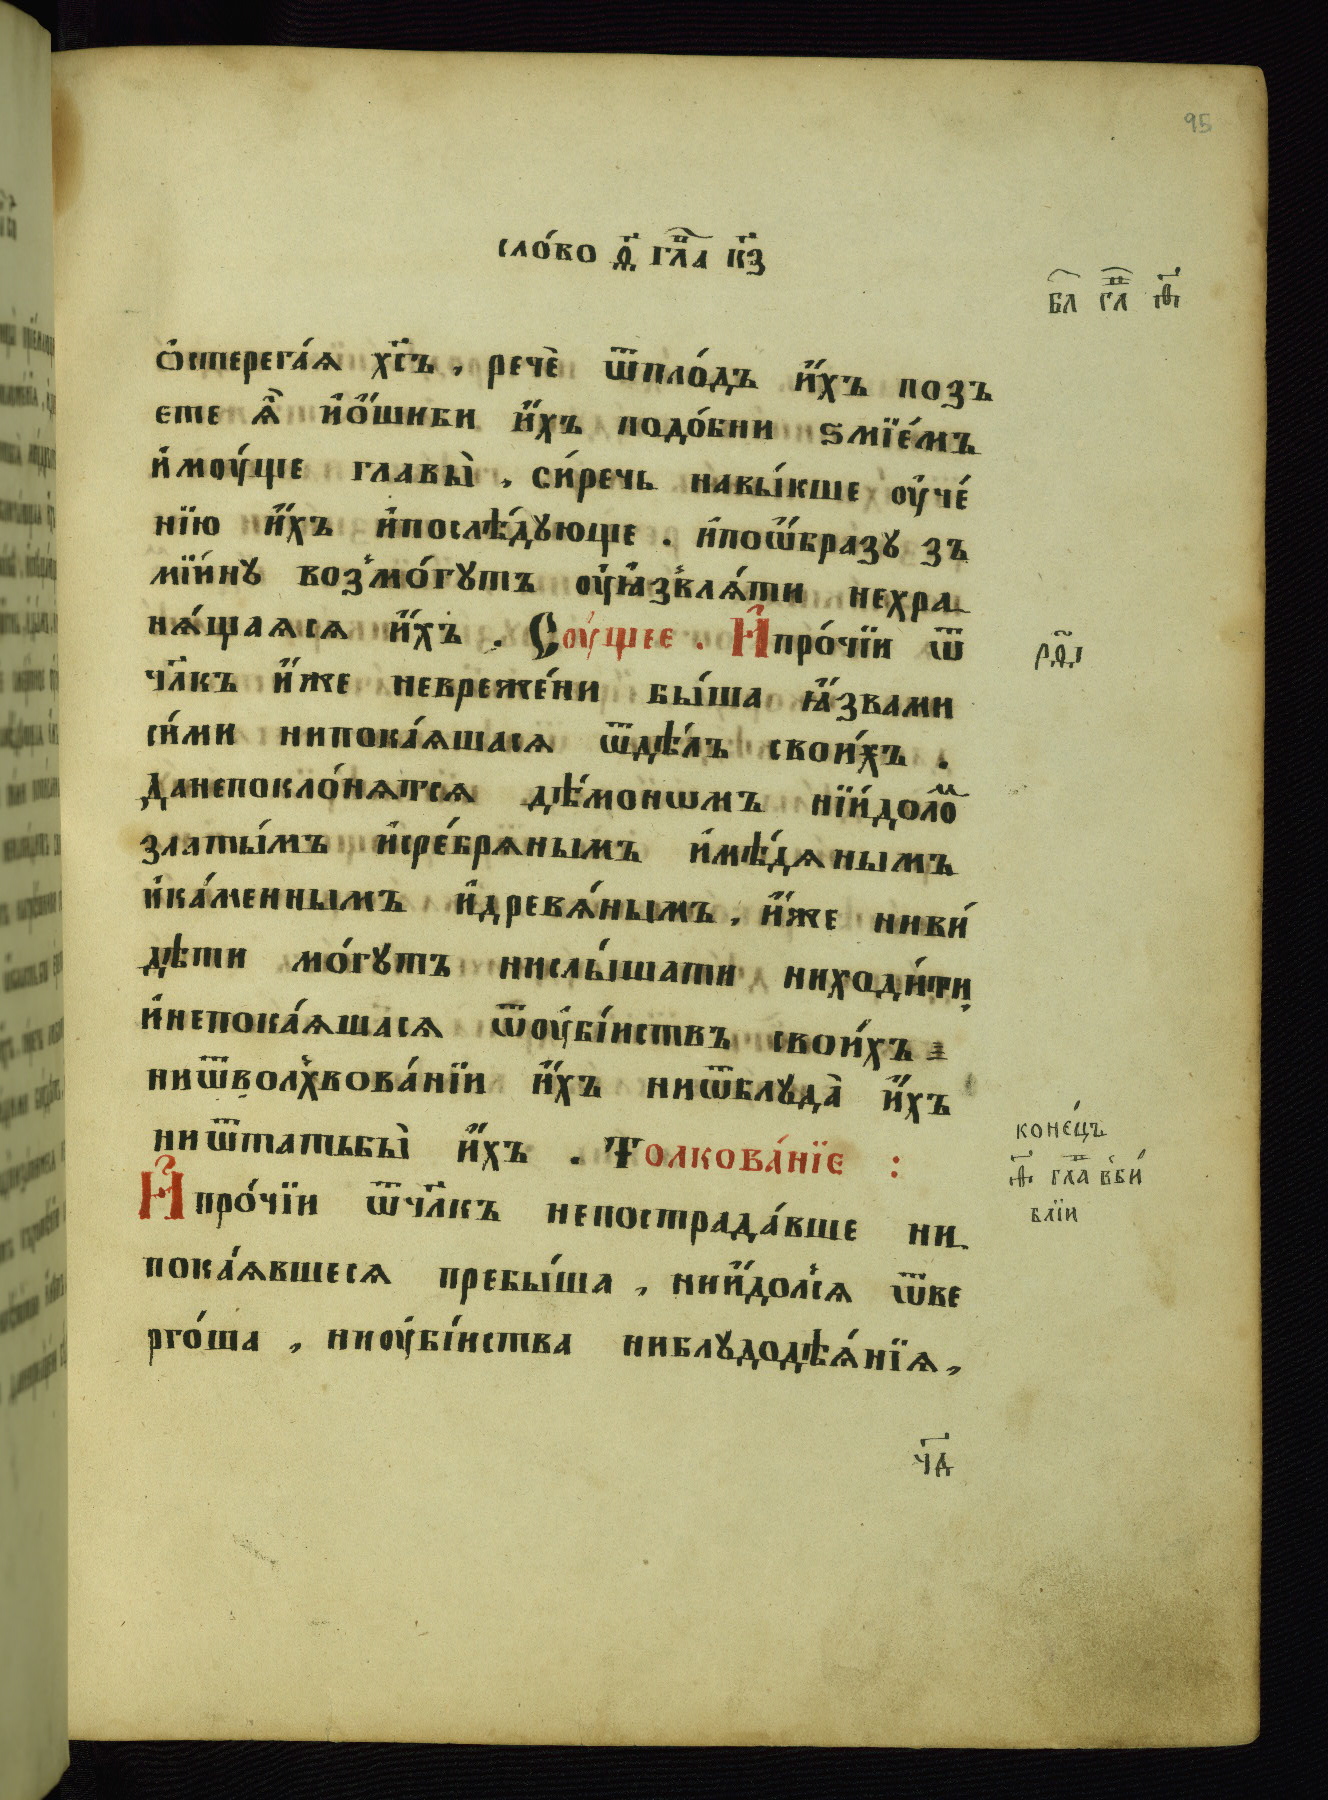 95
сло́во ѳ҃ гл҃а к҃з
бл гл҃ ѳ҃
ѻ҆стерега́ѧ хс҃ъ , речѐ ѿпло́дъ и҆́хъ позъ
ете ѧ҆̀ и҆ѻ҆́шиби и҆́хъ подо́бни ѕмїе́мъ
и҆моу́ще главы̀ , си́речь навы́кше оу҆че́
нїю и҆́хъ и҆послѣ́дꙋюще . и҆поѡ҆́бразꙋ зъ
мїи́нꙋ возмо́гꙋтъ оу҆ꙗ҆звлѧ́ти нехра
нѧ́щаѧсѧ и҆́хъ . Соу́щее . И҆про́чїи ѿ
чл҃къ и҆́же невреже́ни бы́ша ꙗ҆́звами
си́ми нипока́ѧшасѧ ѿдѣ́лъ свои́хъ .
данепокло́нѧтсѧ дѣ́монѡмъ нїи́доло́м
златы́мъ и҆сре́брѧнымъ и҆мѣ́дѧнымъ
и҆ка́меннымъ и҆древѧ́нымъ , и҆́же ниви́
дѣти мо́гꙋтъ нислы́шатиниходи́ти
и҆непока́ѧшасѧ ѿоу҆бі́иствъ свои́хъ
ниѿволхвова́нїи и҆́хъ ниѿблꙋда̀ и҆́хъ
ниѿтатьбы̀ и҆́хъ . Толкова́нїе :
И҆про́чїи ѿчл҃къ непострада́вше ни
пока́ѧвшесѧ пребы́ша , нии҆́долсѧ ѿве
рго́ша , ниоу҆бі́иства ниблꙋдодѣѧ́нїѧ ,
коне́цъ
ѳ҃ гл҃а вби́
блїи
ч҃д